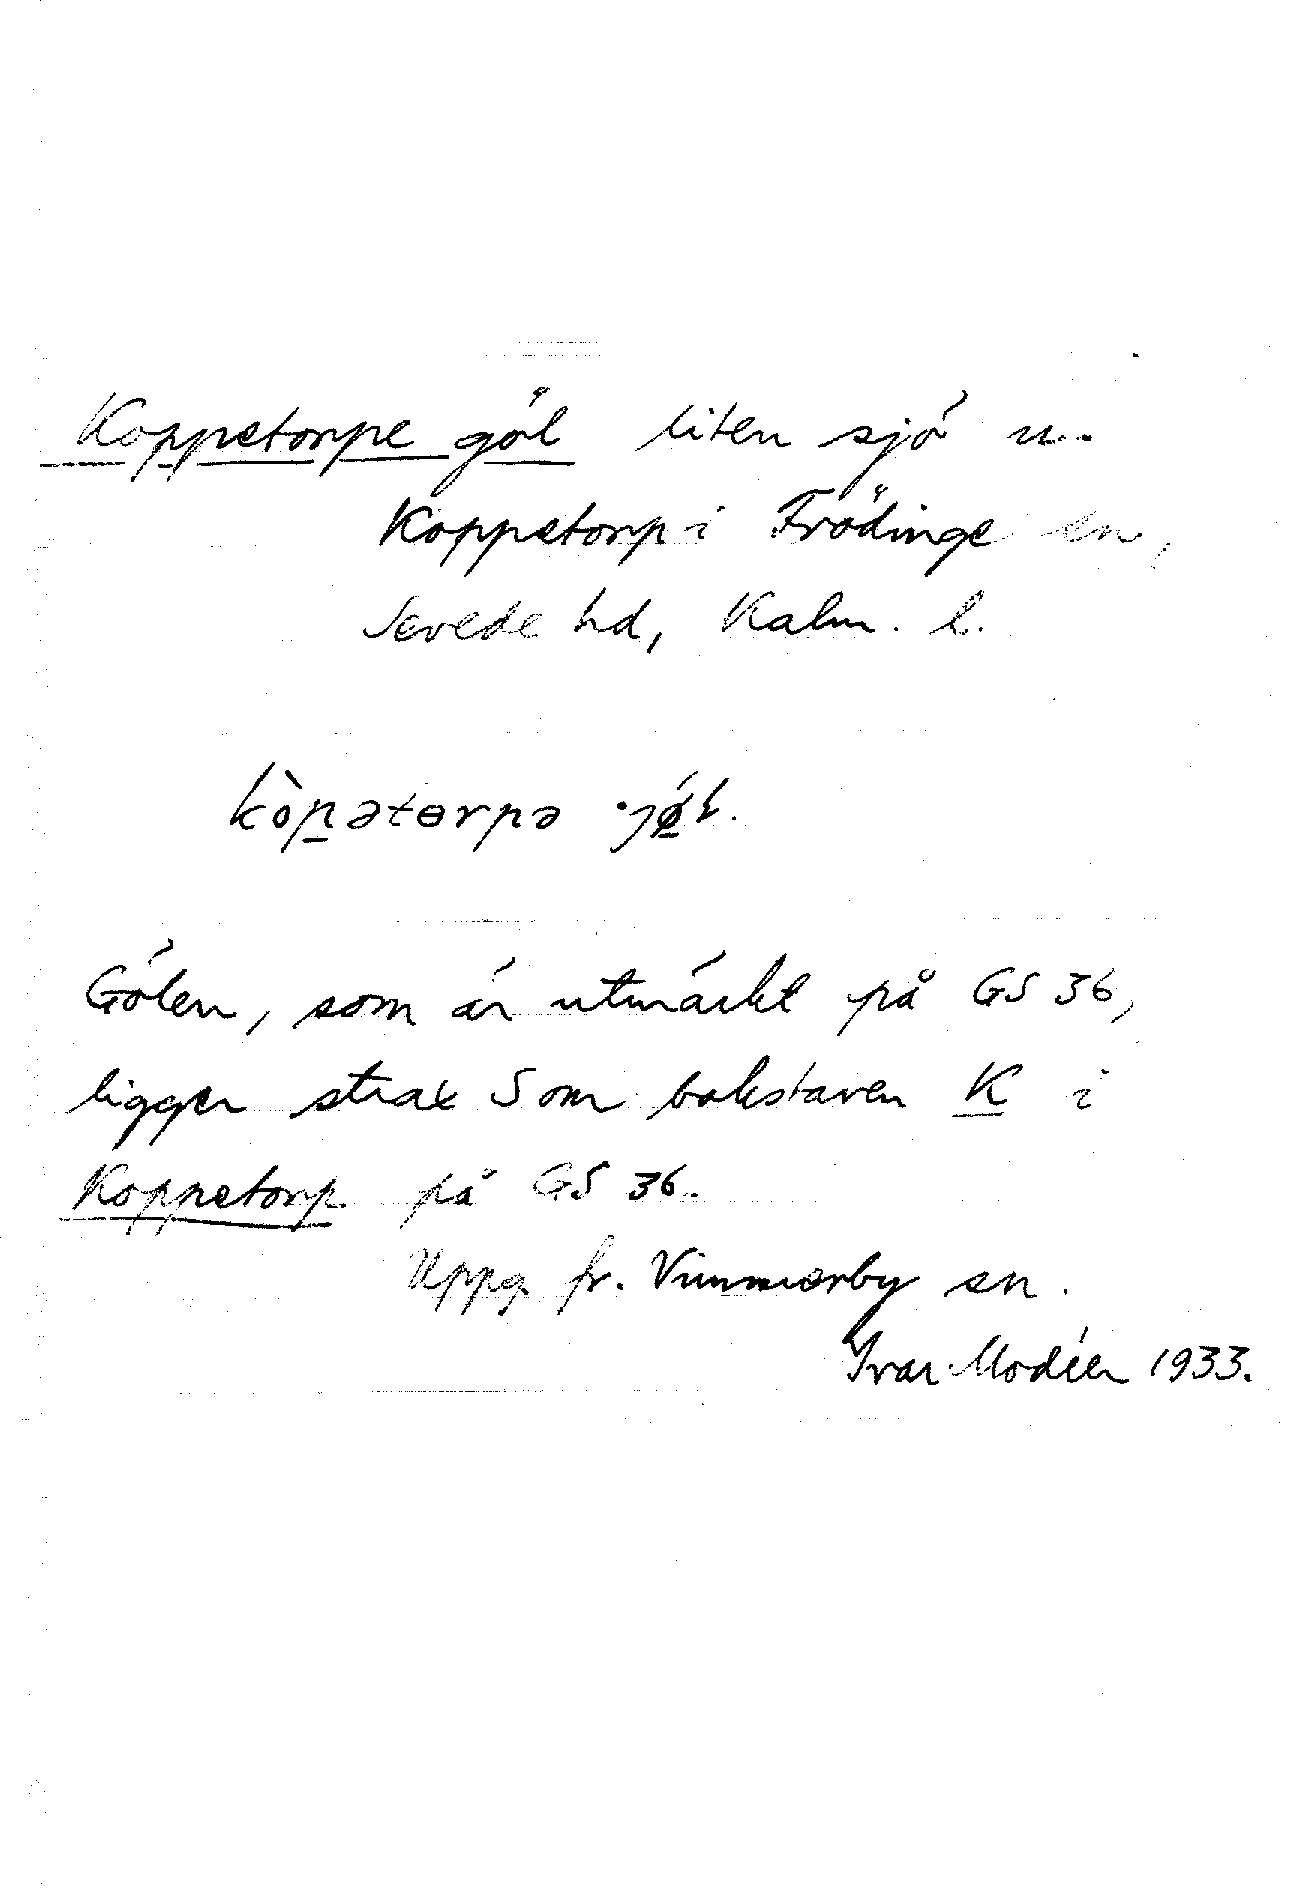 Koppetorpe göl liten sjö u.
Koppetorp i Frödinge sn,
Sevede hd, Kalm. l.
kòp̠ətɵrpə ·jǿ̠l.
Gölen, som är utmärkt på GS 36,
ligger strax S om bokstaven K i
Koppetorp på GS 36.
Uppg. fr. Vimmerby sn.
Ivar Modéer 1933.